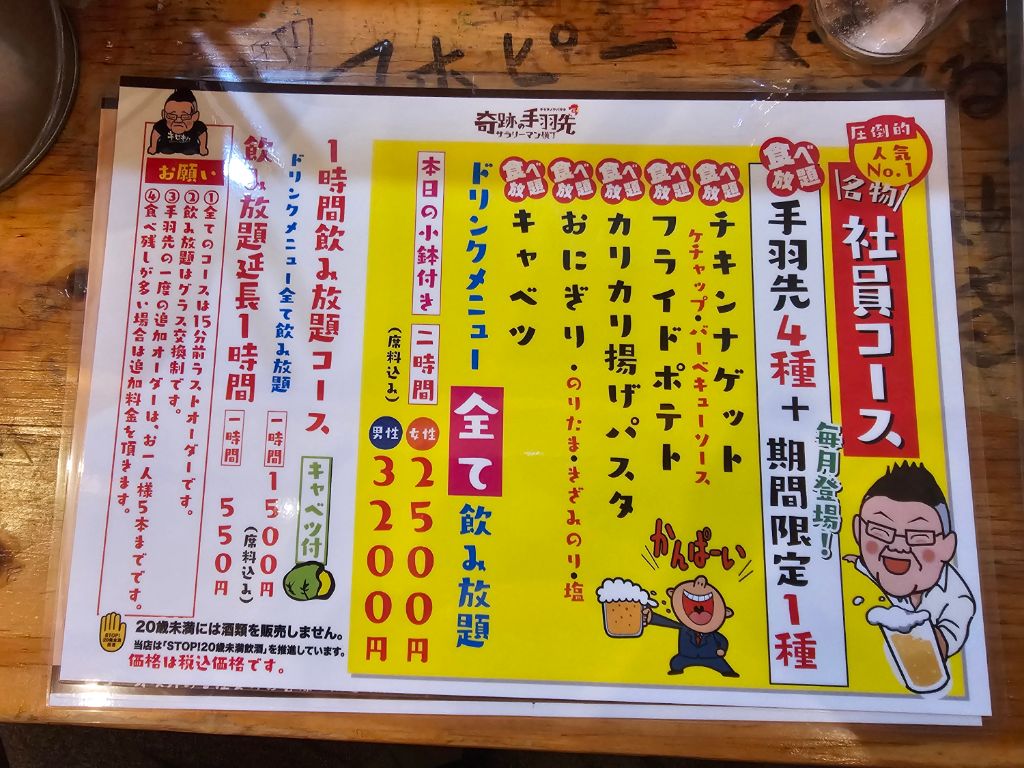 アホピー
奇跡の手羽先
サラリーマン横丁
圧倒的
人気
No.1
名物
社員コース
食べ放題
手羽先4種+期間限定1種
毎月登場!
食べ放題
チキンナゲット
ケチャップ・バーベキューソース
食べ放題
フライドポテト
食べ放題
カリカリ揚げパスタ
食べ放題
おにぎり・のりたま・きざみのり・塩
食べ放題
キャベツ
かんぱーい
ドリンクメニュー全て飲み放題
本日の小鉢付き
二時間
(席料込み)
女性
2500円
男性
3200円
1時間飲み放題コース
キャベツ付
ドリンクメニュー全て飲み放題
一時間1500円
(席料込み)
飲み放題延長1時間
一時間
550円
お願い
①全てのコースは15分前ラストオーダーです。
②飲み放題はグラス交換制です。
③手羽先の一度の追加オーダーは、お一人様5本までです。
④食べ残しが多い場合は追加料金を頂きます。
STOP!
20歳未満飲酒
20歳未満には酒類を販売しません。
当店は「STOP!20歳未満飲酒」を推進しています。
価格は税込価格です。